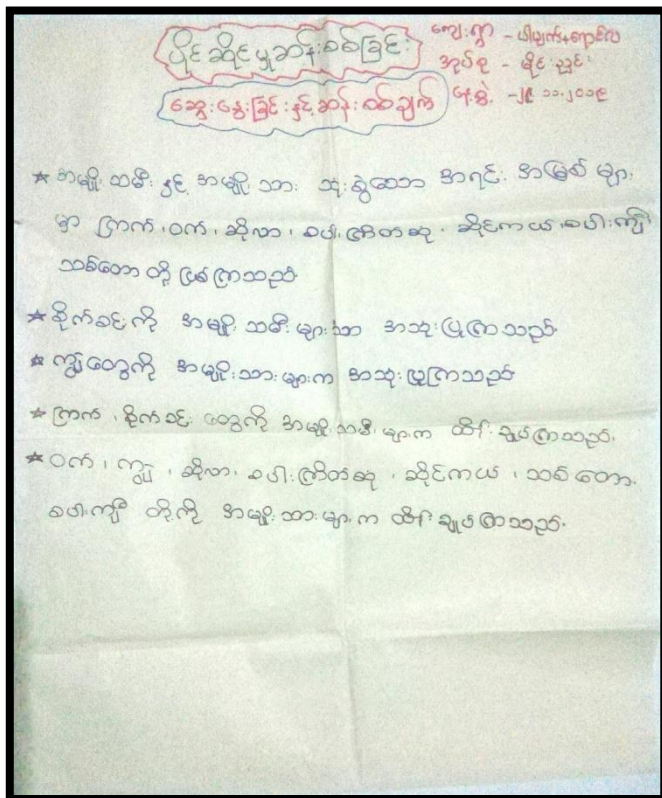 ပိုင်ဆိုင်မှုဆန်းစစ်ခြင်း
ဆွေးနွေးခြင်းနှင့်ဆန်းစစ်ချက်
ကျေးရွာ -
အုပ်စု - မိုင်းညွင်း
နေ့စွဲ - ၂၉.၁၁.၂၀၁၉
* အမျိုးသမီးနှင့် အမျိုးသား သုံးစွဲသော အရင်းအမြစ်များ
မှာ ကြက်၊ ဝက်၊ ဆိုလာ၊ စပါးကြိတ်ဆုံ၊ ဆိုင်ကယ်၊ စပါးကျီ
သစ်တော တို့ ဖြစ်ကြသည်
* စိုက်ခင်းကို အမျိုးသမီးများသာ အသုံးပြုကြသည်
* ကျွဲတွေကို အမျိုးသားများက အသုံးပြုကြသည်
* ကြက်၊ စိုက်ခင်းတွေကို အမျိုးသမီးများက ထိန်းချုပ်ကြသည်.
* ဝက်၊ ကျွဲ၊ ဆိုလာ၊ စပါးကြိတ်ဆုံ၊ ဆိုင်ကယ်၊ သစ်တော၊
စပါးကျီ တို့ကို အမျိုးသားများက ထိန်းချုပ်ကြသည်.